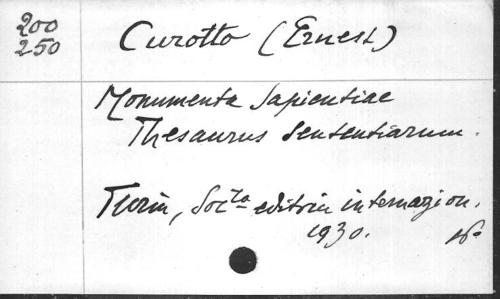 200
250
Curotto (Ernest)
Monumenta Sapientiae
Thesaurus Sententiarum.
Turin, Soc.ta editrice internazion.
1930. 16°